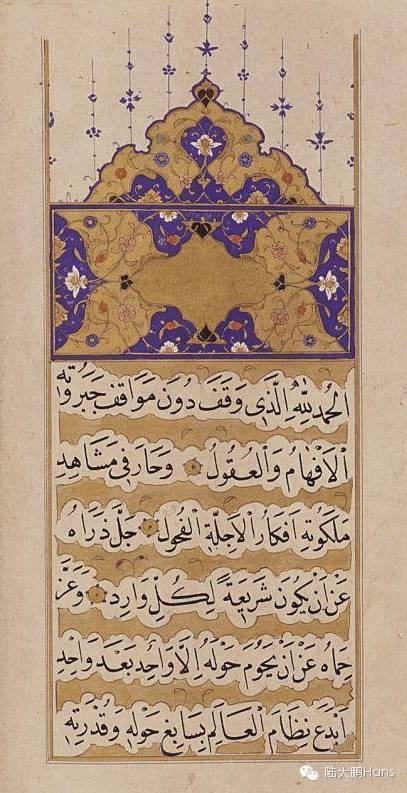 الحمد لله الذى وقف دون مواقف جبروته
الافهام والعقول وحار فى مشاهد
ملكوته افكار الاجلة الفحول جل ذراه
عن ان يكون شريعة لكل وارد وعز
حماه عن ان يحوم حوله الا واحد بعد واحد
ابدع نظام العالم بسابغ حوله وقدرته
陆大鹏Hans